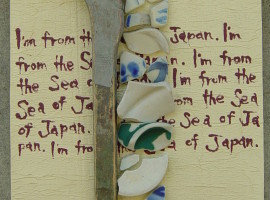 I'm from the Japan. I'm
from the Sea n. I'm from
the Sea o I'm from the
Sea of Ja Sea
of Japan. e Sea of Ja
pan. I'm fro of Japan.